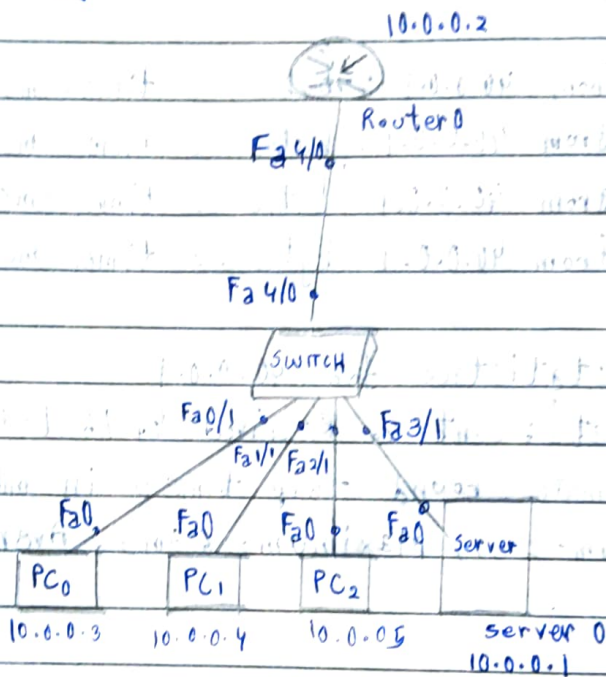 10.0.0.2
Router0
Fa 4/0
Fa 4/0
SWITCH
Fa0/1
Fa1/1
Fa2/1
Fa3/1
Fa0
Fa0
Fa0
Fa0
Server
PC0
PC1
PC2
10.0.0.3
10.0.0.4
10.0.05
server 0
10.0.0.1